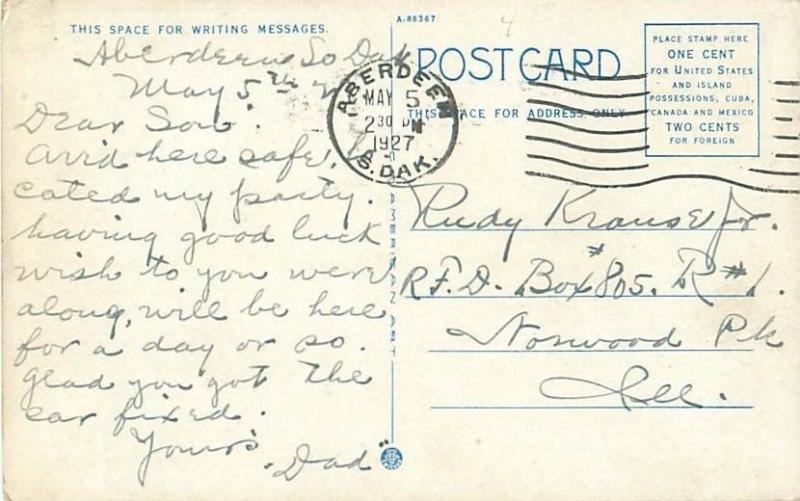 A-86367
THIS SPACE FOR WRITING MESSAGES.
Aberdeen So Dak
May 5th
Dear Son:
Arr'd here safe, lo
cated my party.
having good luck
wish to you were
along, will be here
for a day or so.
Glad you got the
car fixed.
Yours
"Dad"
POST CARD
THIS SPACE FOR ADDRESS ONLY
PLACE STAMP HERE
ONE CENT
FOR UNITED STATES
AND ISLAND
POSSESSIONS, CUBA,
CANADA AND MEXICO
TWO CENTS
FOR FOREIGN
ABERDEEN
MAY 5
230 PM
1927
S. DAK.
Rudy Krause Jr.
R.F.D. Box #805. R#1.
Norwood Pk
Ill.